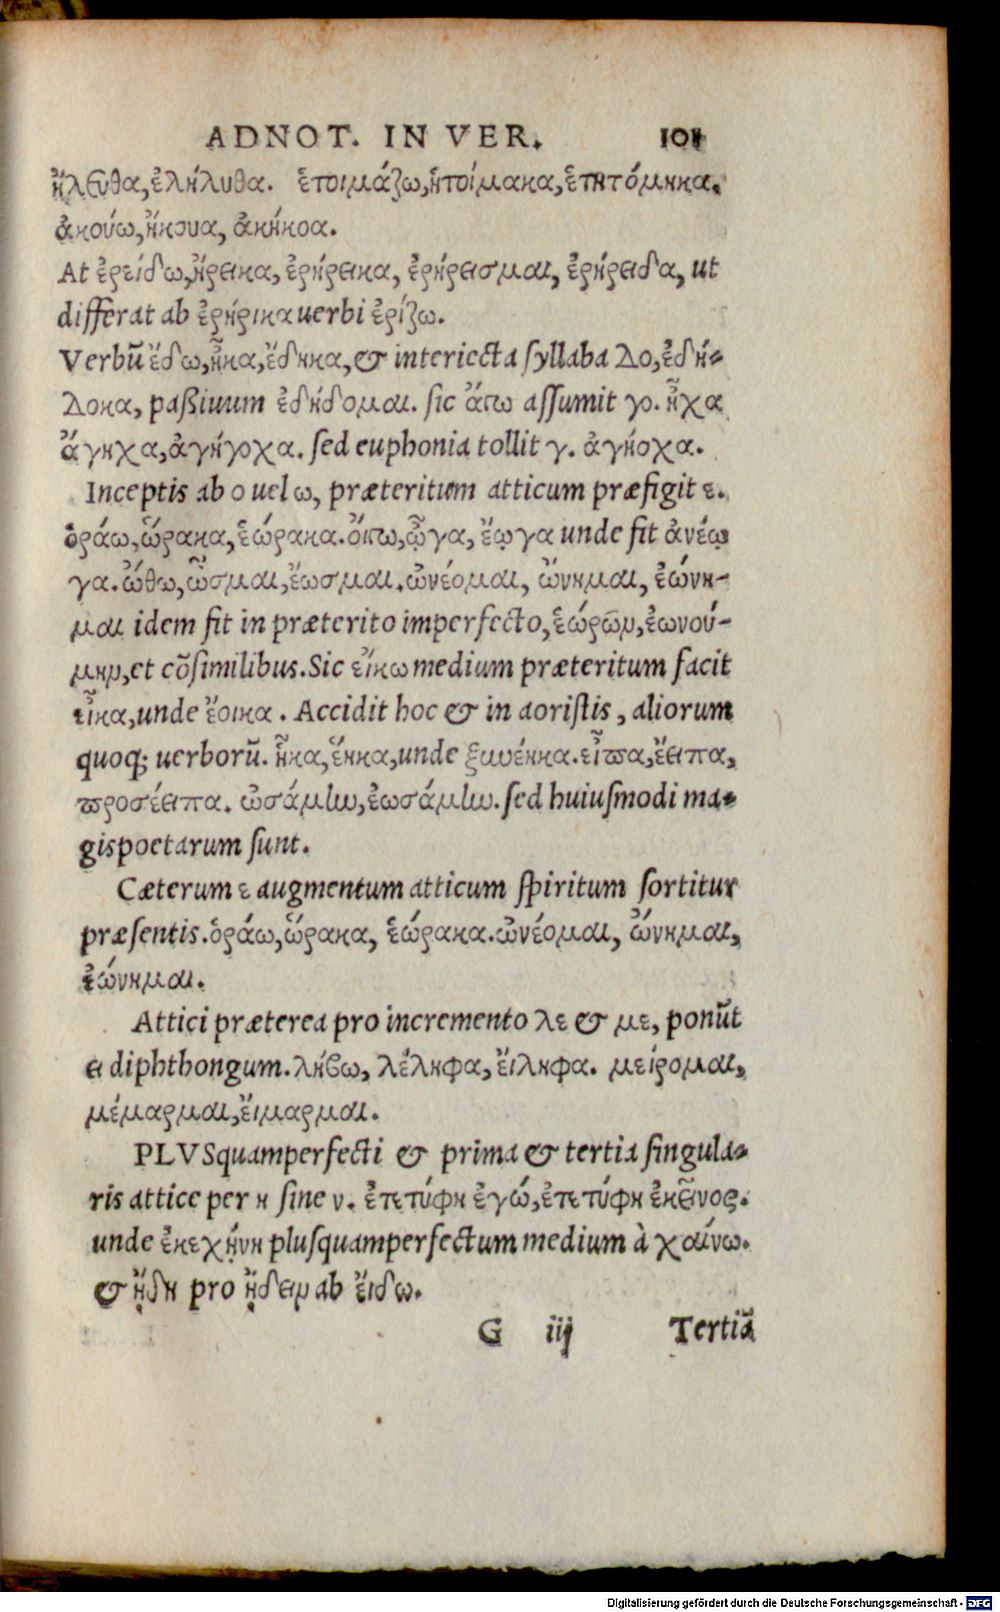 ADNOT. IN VER. 101
ἤλευθα, ἐλήλυθα. ἑτοιμάζω, ἡτοίμακα, ἑτητόμηκα.
ἀκούω, ἤκουα, ἀκήκοα.
At ἐρείδω, ἤρεικα, ἐρήρεικα, ἐρήρεισμαι, ἐρήρειδα, ut
differat ab ἐρήρικα uerbi ἐρίζω.
Verbũ ἔδω, ἦκα, ἔδηκα, & interiecta syllaba δο, ἐδή-
δοκα, paßiuum ἐδήδομαι. sic ἄγω assumit γο. ἦχα
ἄγηχα, ἀγήγοχα. sed euphonia tollit γ. ἀγήοχα.
Inceptis ab o uel ω, præteritum atticum præfigit ε.
ὁράω, ὥρακα, ἑώρακα. οἴγω, ᾦγα, ἔῳγα unde fit ἀνέῳ
γα. ὤθω, ὦσμαι, ἔωσμαι. ὠνέομαι, ὤνημαι, ἐώνη-
μαι idem fit in præterito imperfecto, ἑώρων, ἐωνού-
μην, et cõsimilibus. Sic εἴκω medium præteritum facit
εἶκα, unde ἔοικα. Accidit hoc & in aoristis, aliorum
quoq; uerborũ. ἧκα, ἕηκα, unde ξυνέηκα. εἶπα, ἔειπα,
προσέειπα. ὠσάμην, ἐωσάμην. sed huiusmodi ma-
gis poetarum sunt.
Cæterum ε augmentum atticum spiritum sortitur
præsentis. ὁράω, ὥρακα, ἑώρακα. ὠνέομαι, ὤνημαι,
ἐώνημαι.
Attici præterea pro incremento λε & με, ponũt
ει diphthongum. λήβω, λέληφα, εἴληφα. μείρομαι,
μέμαρμαι, εἵμαρμαι.
PLVSquamperfecti & prima & tertia singula-
ris attice per η sine ν. ἐτετύφη ἐγώ, ἐτετύφη ἐκεῖνος.
unde ἐκεχήνη plusquamperfectum medium à χαίνω.
& ᾔδη pro ᾔδειν ab εἴδω.
G iij Tertiã
Digitalisierung gefördert durch die Deutsche Forschungsgemeinschaft - DFG